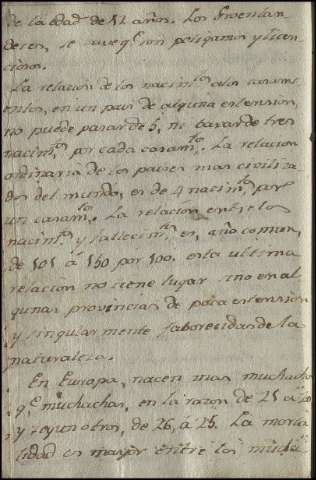 de la edad de 12 años. Los Groenlan
deses, se cree q.e son polígamos y licen
ciosos.
La relación de los nacim.tos a los casam.
entos, en un pais de alguna extension,
no puede pasar de 5, ni baxar de tres
nacim.tos por cada casam.to. La relacion
ordinaria de los paises mas civiliza
dos del mundo, es de 4 nacim.tos por
un casam.to. La relacion entre los
nacim.tos y fallecim.tos es, año comun,
de 101 á 150 por 100. esta ultima
relacion no tiene lugar sino en al
gunas provincias de poca extension
y singularmente faborecidas de la
naturaleza.
En Europa, nacen mas muchachos
q.e muchachas, en la razon de 21 a 20
y segun otros, de 26, a 25. La morta
lidad es mayor entre los mucha